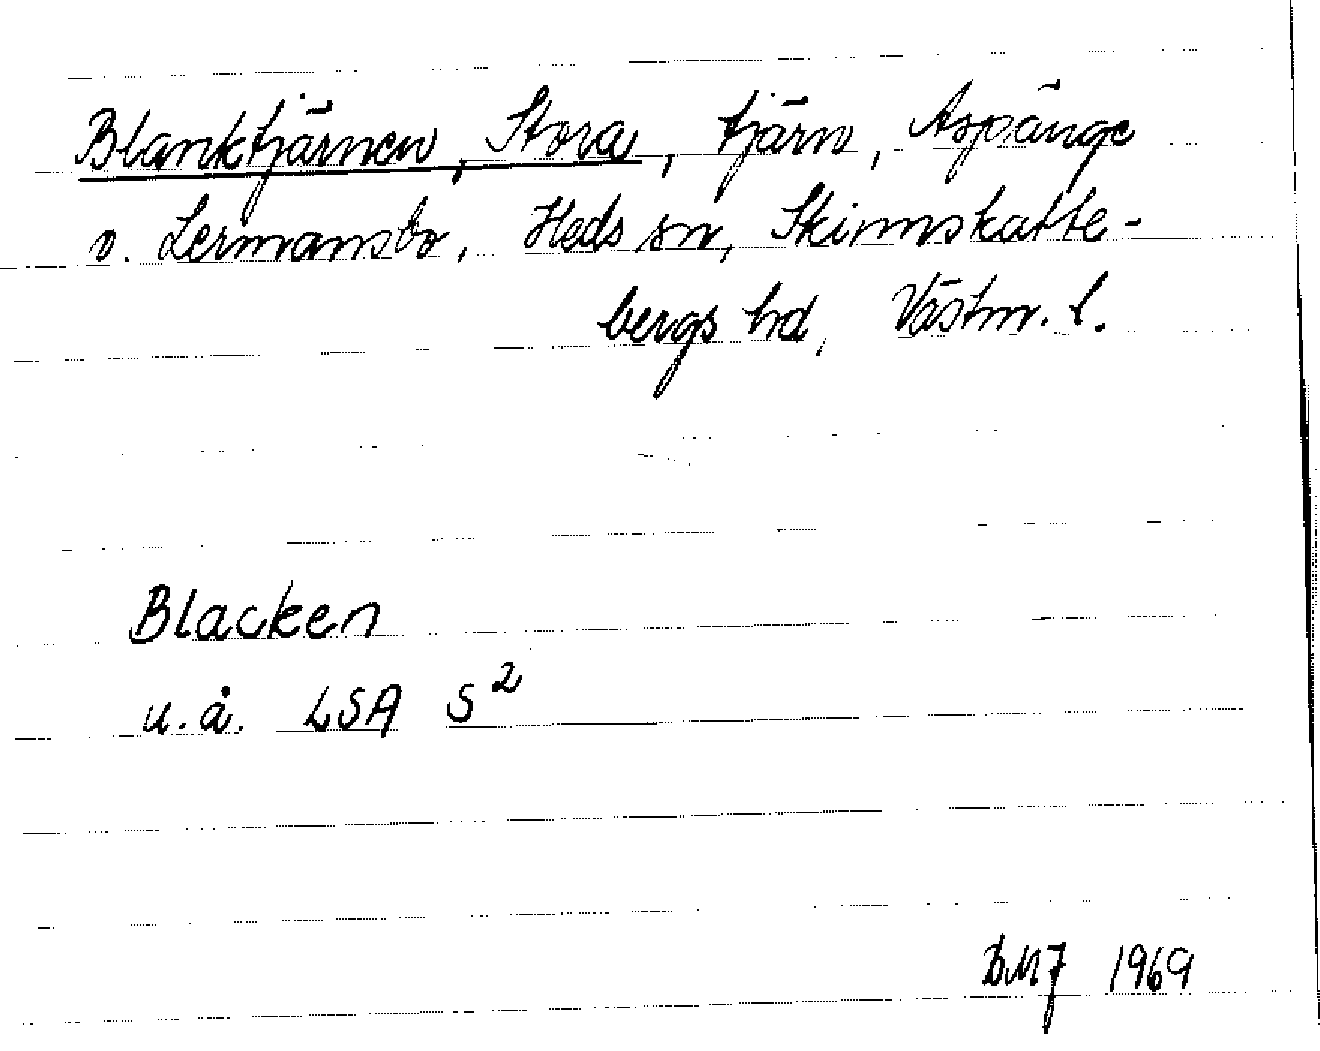 Blanktjärnen, Stora, tjärn, Aspänge
o. Lermansbo, Heds sn, Skinnskatte-
bergs hd, Västm. l.
Blacken
u.å. LSA S²
BMJ 1969